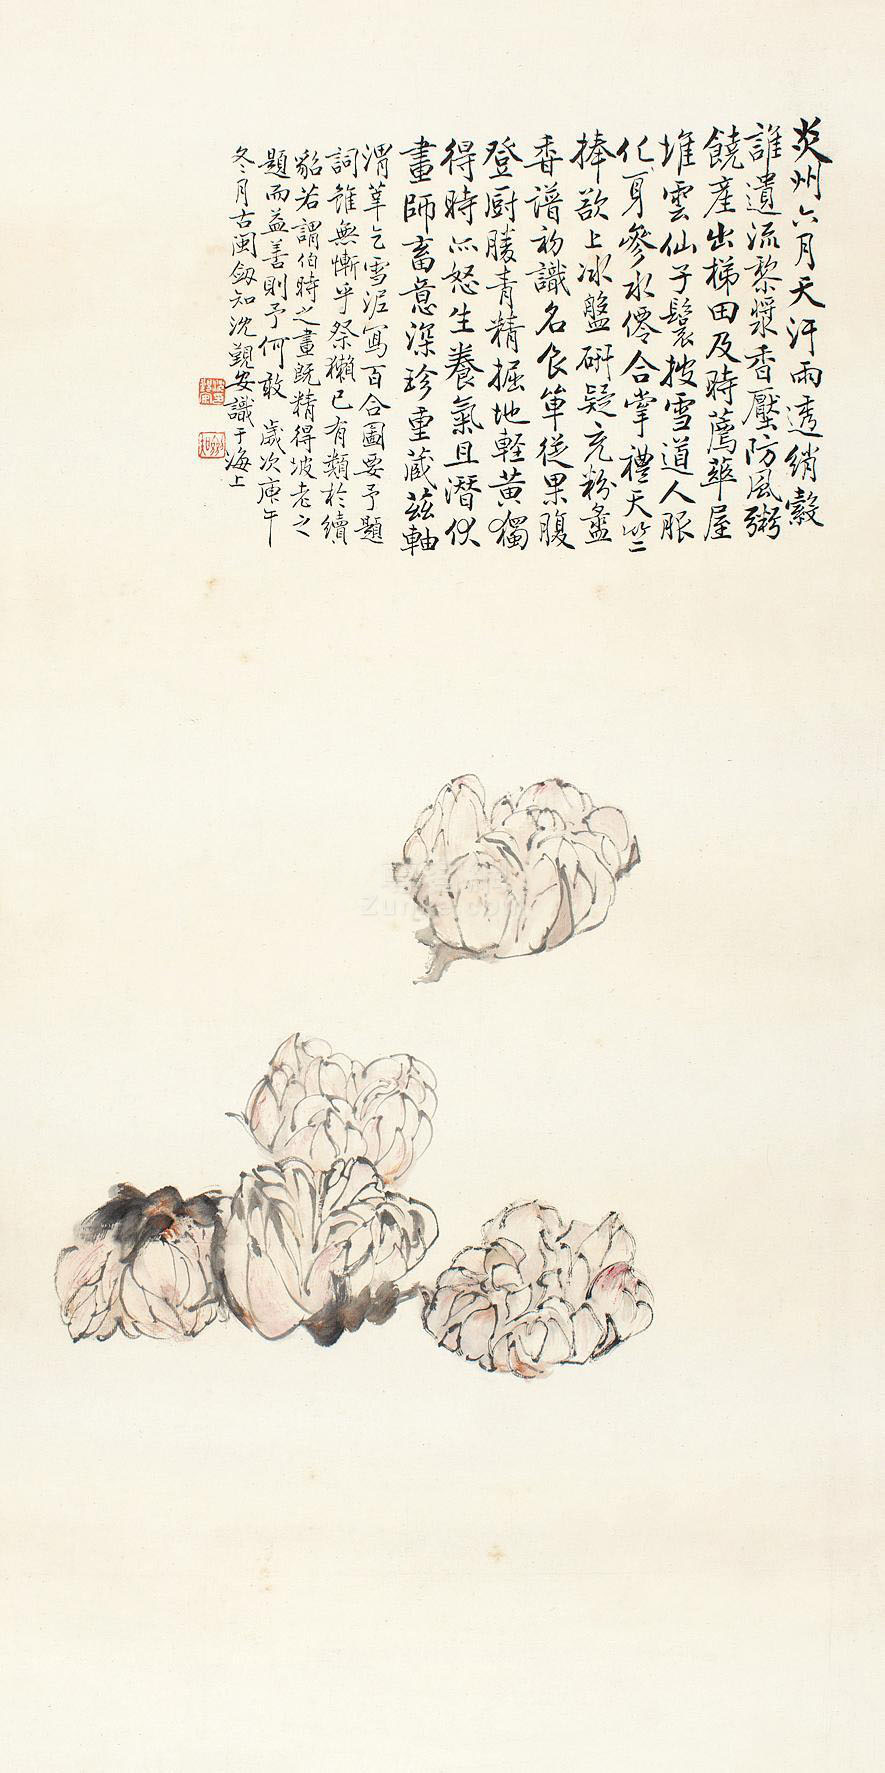 炎州六月天汗雨透綃縠
誰遺流黎漿香壓防風粥
饒產出梯田及時薦華屋
堆雲仙子鬟披雪道人服
化身參水僊合掌禮天竺
捧欲上冰盤研疑充粉盝
香譜初識名食單從果腹
登厨勝青精掘地輕黃獨
得時亦怒生養氣且潛伏
畫師畜意深珍重藏茲軸
渭莘乞雪泥寫百合圖要予題
詞雖無慚乎祭獺已有類於續
貂若謂伯時之畫既精得坡老之
題而益善則予何敢 歲次庚午
冬月古閩劔知沈覲安識于海上